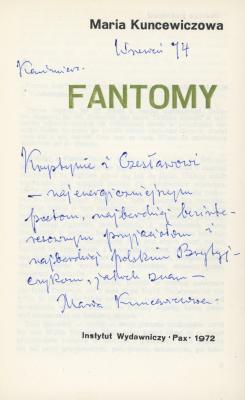 Maria Kuncewiczowa
Wrzesień 74
Kazimierz.
FANTOMY
Krystynie i Czesławowi
— najenergiczniejszym
poetom, najbardziej bezinte-
resownym przyjaciołom i
najbardziej polskim Brytyj-
czykom, jakich znam —
Maria Kuncewiczowa.
Instytut Wydawniczy · Pax · 1972